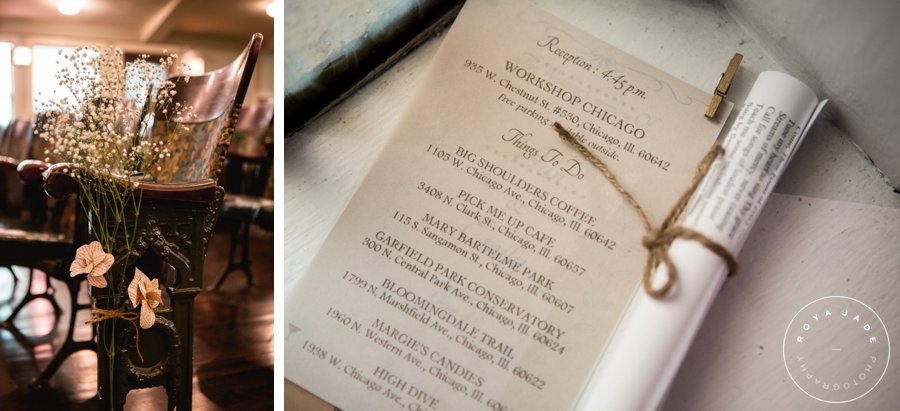 Reception : 4:45 p.m.
WORKSHOP CHICAGO
935 W. Chestnut St. #530, Chicago, Ill. 60642
Free parking outside.
Things To Do
BIG SHOULDERS COFFEE
1105 W. Chicago Ave., Chicago, Ill. 60642
PICK ME UP CAFE
3408 N. Clark St., Chicago, Ill. 60657
MARY BARTELME PARK
115 S. Sangamon St., Chicago, Ill. 60607
GARFIELD PARK CONSERVATORY
300 N. Central Park Ave., Chicago, Ill. 60624
BLOOMINGDALE TRAIL
1799 N. Marshfield Ave., Chicago, Ill. 60622
MARGIE'S CANDIES
1960 N. Western Ave., Chicago, Ill.
HIGH DIVE
1938 W. Chicago Ave., Chicago
Tune my heart
Call for songs of
ROYA JADE
PHOTOGRAPHY